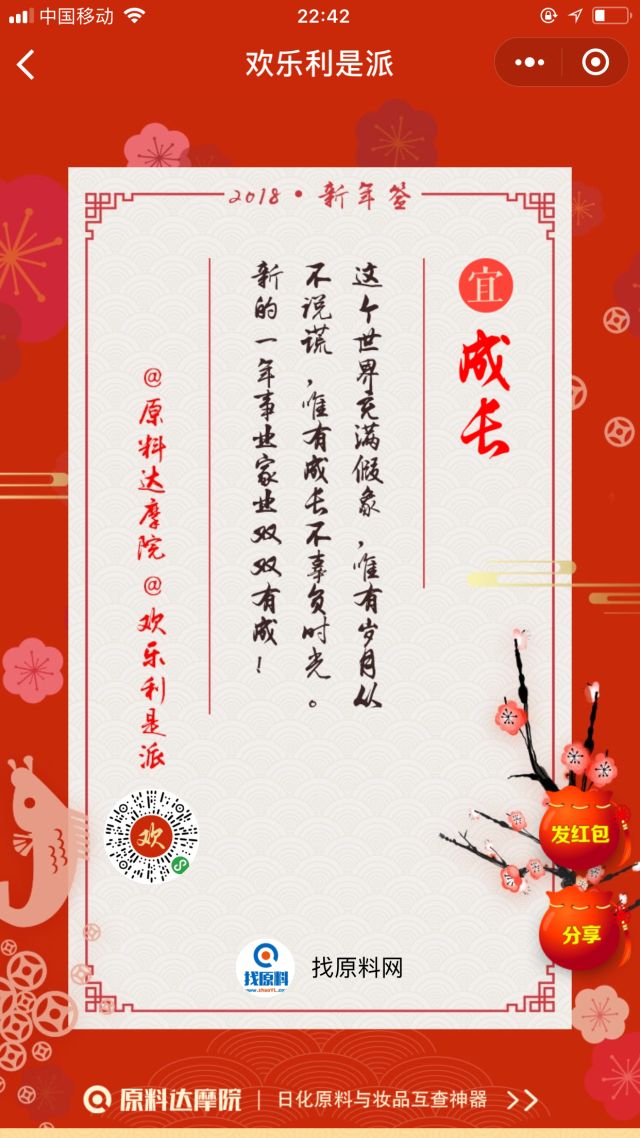 中国移动
22:42
欢乐利是派
2018·新年签
宜
成长
这个世界充满假象,唯有岁月从
不说谎,唯有成长不辜负时光。
新的一年事业家业双双有成!
@原料达摩院@欢乐利是派
欢
发红包
分享
找原料
找原料网
原料达摩院 | 日化原料与妆品互查神器 >>